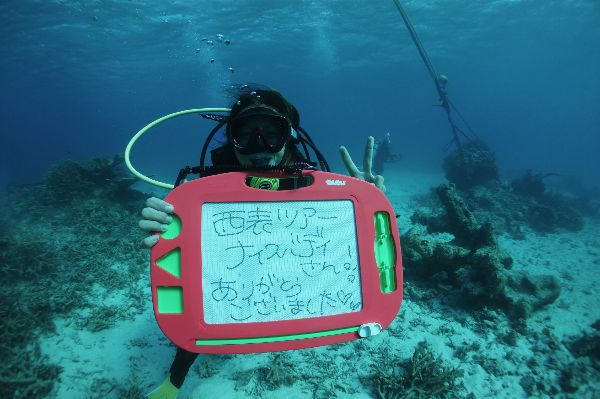 西表ツアー
ナイスバディ
さん!
ありがとう
ございました♡